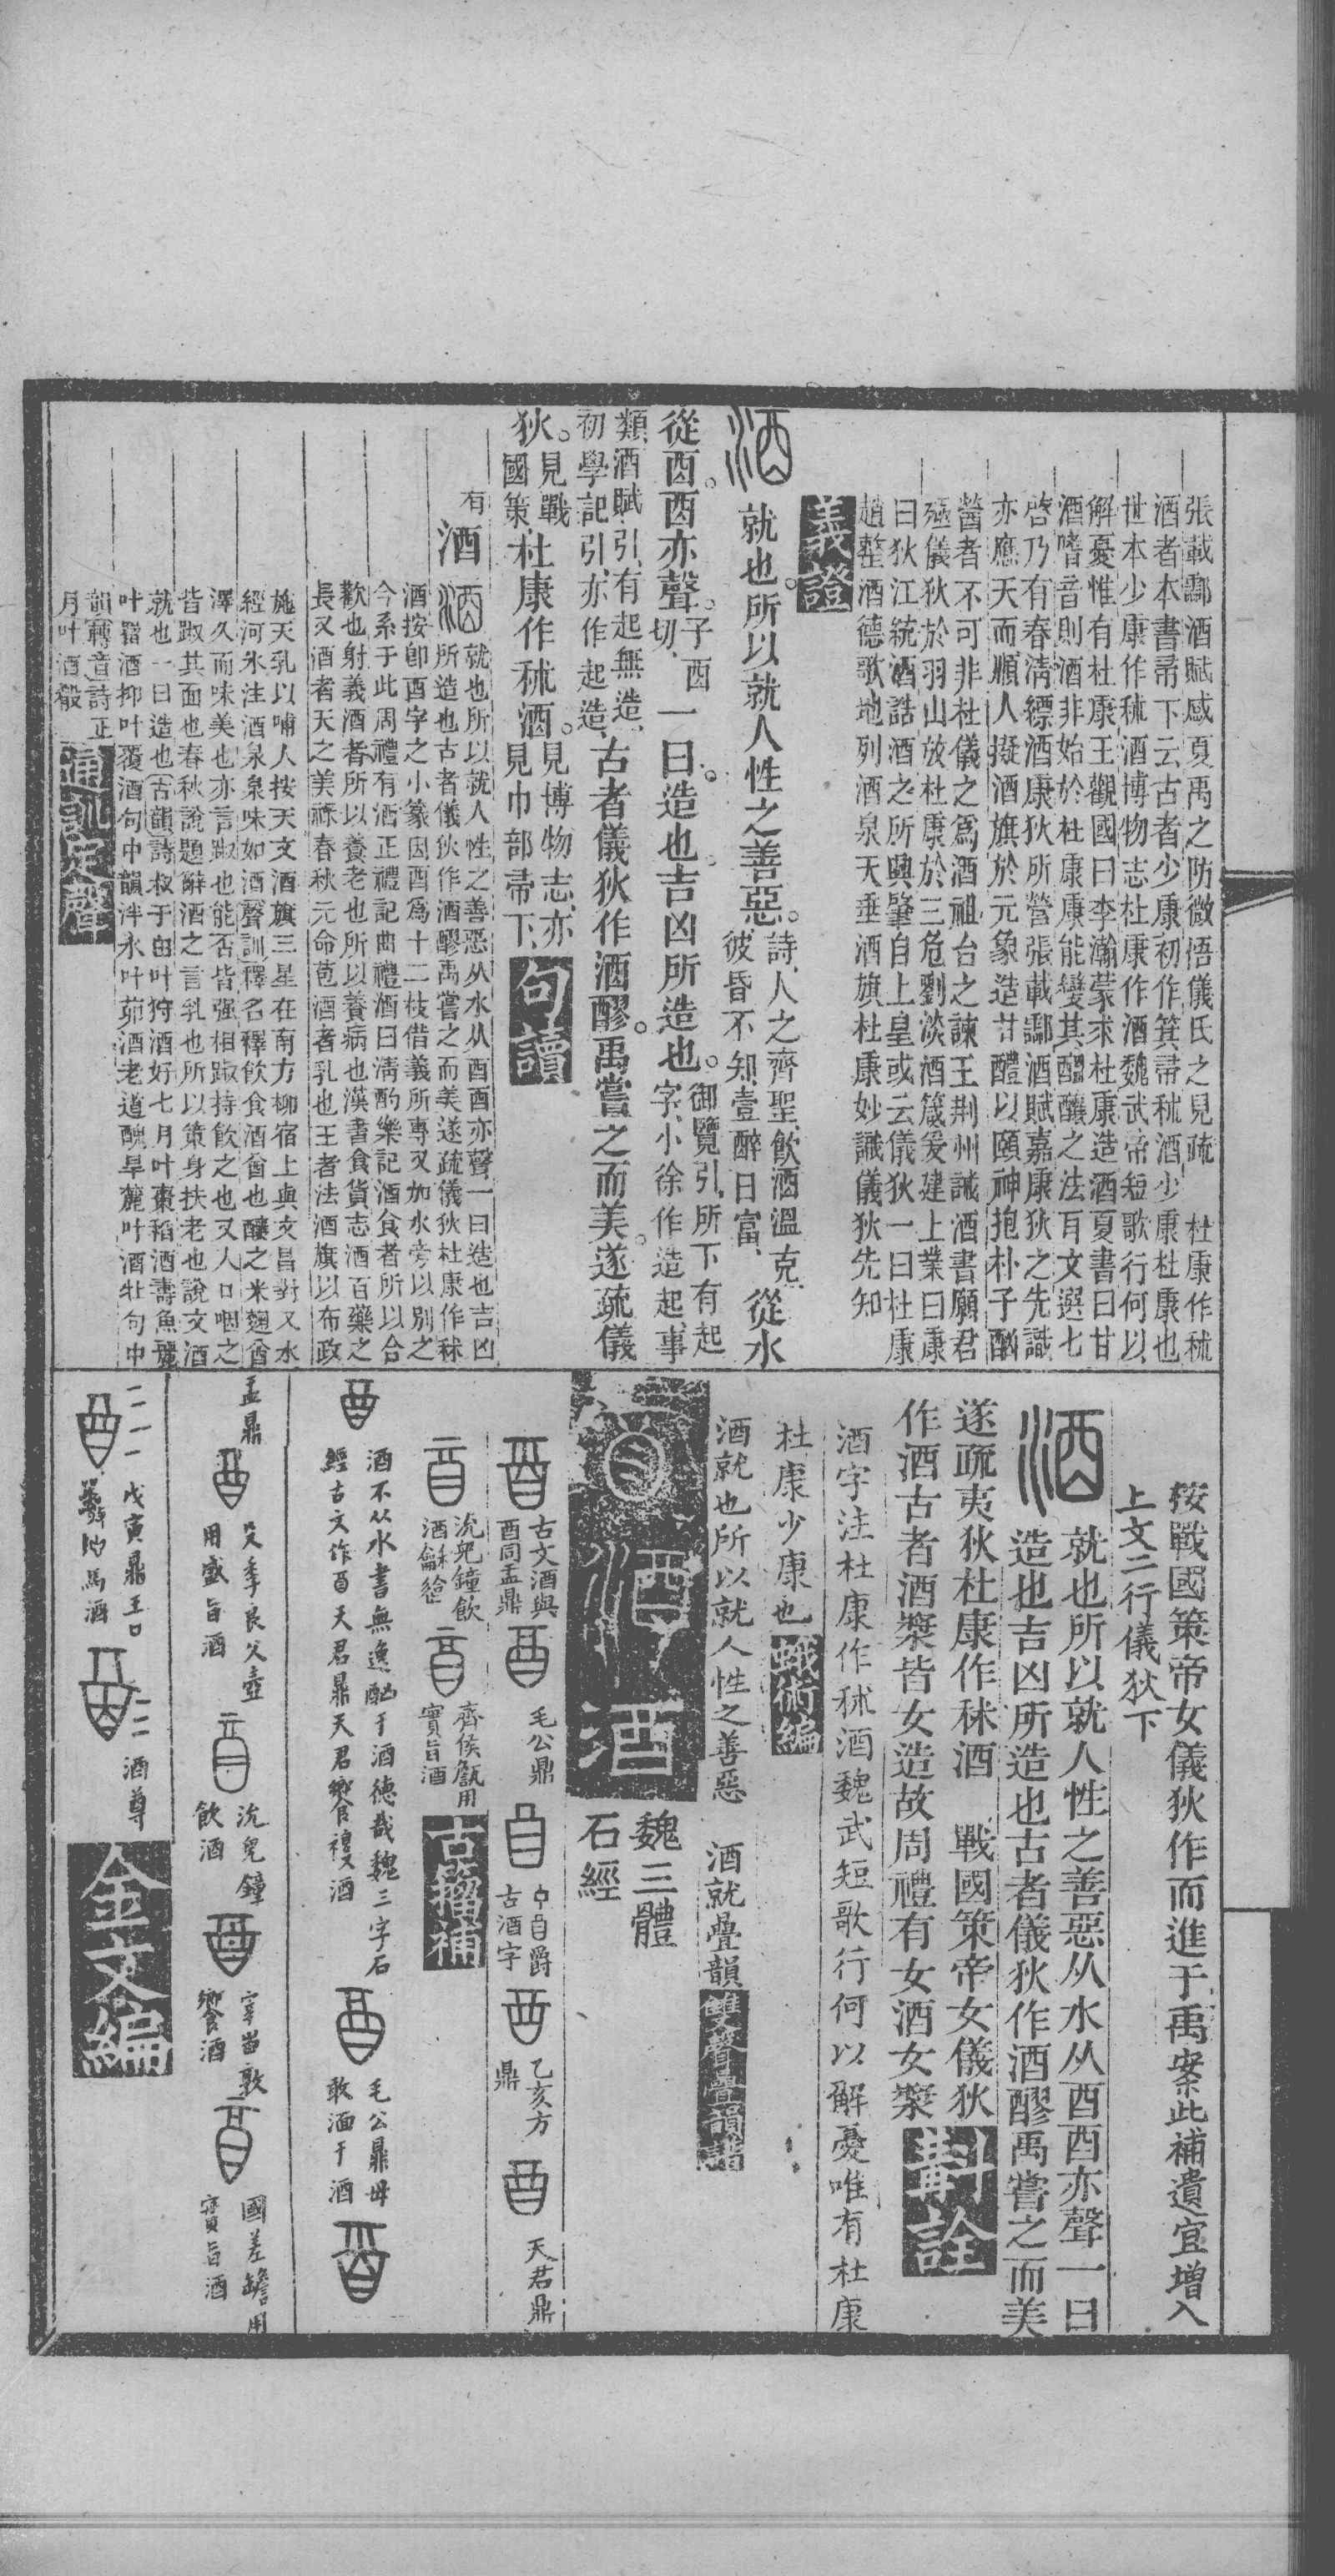 張載酃酒賦感夏禹之防微悟儀氏之見疏　杜康作秫
酒者本書帚下云古者少康初作箕帚秫酒少康杜康也
世本少康作秫酒博物志杜康作酒魏武帝短歌行何以
解憂惟有杜康王觀國曰李瀚蒙求杜康造酒夏書曰甘
酒嗜音則酒非始於杜康康能變其醞釀之法耳文選七
啓乃有春淸縹酒康狄所營張載酃酒賦嘉康狄之先識
亦應天而順人擬酒旗於元象造甘醴以頤神抱朴子酒
醟者不可非杜儀之爲酒祖台之諫王荆州誡酒書願君
殛儀狄於羽山放杜康於三危劉淡酒箴爰建上業曰康
曰狄江統酒誥酒之所興肇自上皇或云儀狄一曰杜康
趙整酒德歌地列酒泉天垂酒旗杜康妙識儀狄先知
義證
就也。所以就人性之善惡。詩、人之齊聖、飲酒溫克、彼昏不知、壹醉日富、從水
從酉。酉亦聲。子酉切、一曰。造也。吉凶所造也。御覽引、所下有起字、小徐作造起、事
類酒賦、引、有起無造、初學記引、亦作起造、古者儀狄作酒醪。禹嘗之而美。遂疏儀
狄。見戰國策、杜康作秫酒。見博物志、亦見巾部帚下、句讀
有
酒　就也所以就人性之善惡从水从酉酉亦聲一曰造也吉凶
所造也古者儀狄作酒醪禹嘗之而美遂疏儀狄杜康作秫
酒按卽酉字之小篆因酉爲十二枝借義所專又加水旁以別之
今系于此周禮有酒正禮記曲禮酒曰淸酌樂記酒食者所以合
歡也射義酒者所以養老也所以養病也漢書食貨志酒百藥之
長又酒者天之美祿春秋元命苞酒者乳也王者法酒旗以布政
施天乳以哺人按天文酒旗三星在南方柳宿上與文昌對又水
經河水注酒泉泉味如酒聲訓釋名釋飲食酒酋也釀之米麴酋
澤久而味美也亦言踧也能否皆强相踧持飲之也又入口咽之
皆踧其面也春秋說題辭酒之言乳也所以策身扶老也說文酒
就也一曰造也古韻詩叔于田叶狩酒好七月叶棗稻酒壽魚麗
叶罶酒抑叶覆酒句中韻泮水叶茆酒老道醜旱麓叶酒牡句中
韻轉音詩正
月叶酒殽　通訓定聲
按戰國策帝女儀狄作而進于禹案此補遺宜增入
上文二行儀狄下
就也所以就人性之善惡从水从酉酉亦聲一曰
造也吉凶所造也古者儀狄作酒醪禹嘗之而美
遂疏夷狄杜康作秫酒　戰國策帝女儀狄
作酒古者酒漿皆女造故周禮有女酒女漿　斠詮
酒字注杜康作秫酒魏武短歌行何以解憂唯有杜康
杜康少康也　蛾術編
酒就也所以就人性之善惡　酒就疊韻　雙聲疊韻譜
酒　魏三體
石經
古文酒與
酉同盂鼎　毛公鼎　中酉爵
古酒字　乙亥方
鼎　天君鼎
沇兒鐘飲
酒龢繪　齊侯甔用
實旨酒　古籀補
酒不从水書無逸酗于酒德哉魏三字石
經古文作酉天君鼎天君鄉酒　毛公鼎毋
敢湎于酒
盂鼎　殳季良父壺
用盛旨酒　沇兒鐘
飲酒　宰甾敦
饗酒　國差𦉜用
實旨酒
戊寅鼎王口
馬酒　酒尊　金文編